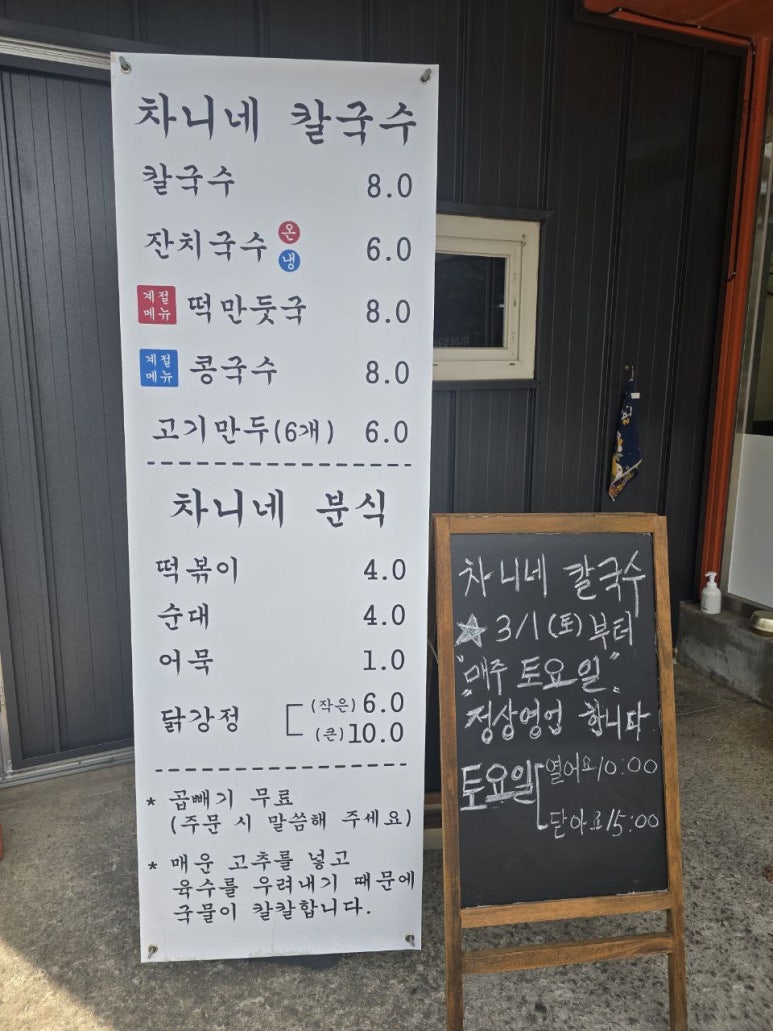 차니네 칼국수
칼국수 8.0
잔치국수 온 냉 6.0
계절메뉴 떡만둣국 8.0
계절메뉴 콩국수 8.0
고기만두(6개) 6.0
차니네 분식
떡볶이 4.0
순대 4.0
어묵 1.0
닭강정 (작은) 6.0
(큰) 10.0
* 곱빼기 무료
(주문 시 말씀해 주세요)
* 매운 고추를 넣고
육수를 우려내기 때문에
국물이 칼칼합니다.
차니네 칼국수
☆ 3/1 (토) 부터
"매주 토요일"
정상영업 합니다
토요일 열어요 10:00
닫아요 15:00